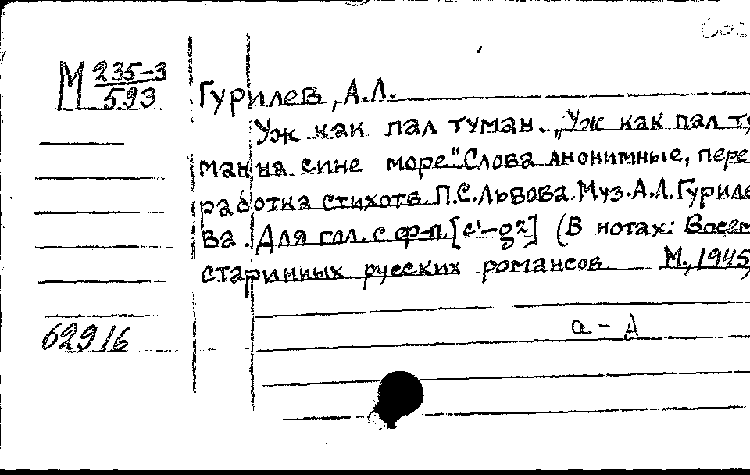 М 235-3
593
Гурилев, А.Л.
Уж как пал туман. „Уж как пал ту
ман на сине море". Слова анонимные, пере
работка стихотв. П.С. Львова. Муз. А.Л. Гуриле
ва. Для гол. с ф-п. [c¹-g²] (В нотах: Восем
старинных русских романсов М., 1945,
а - д
62916